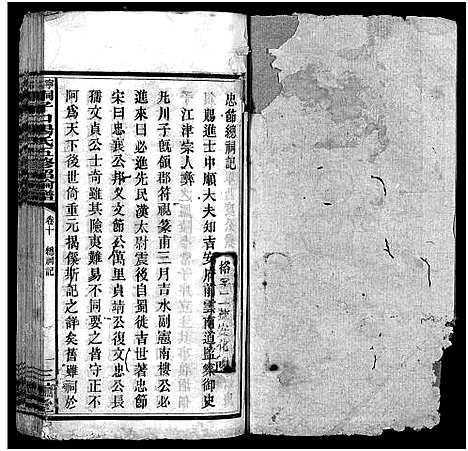 忠節總祠記
賜進士中順大夫知吉安府前雲南道監察御史
江津宗人彝
九川子既領郡符視篆甫三月吉水副憲南樓公必
進來曰必進先民漢太尉震後自蜀徙吉世著忠節
宋曰忠襄公邦乂文節公萬里貞請公復文忠公長
孺文貞公士奇雖其險夷難易不同要之皆守正不
阿為天下後世倚重元揭傒斯記之詳矣舊雖祠於
卷十
總祠記